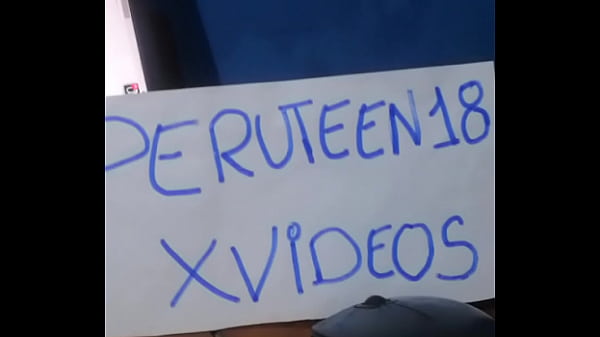 PERUTEEN18
XVIDEOS